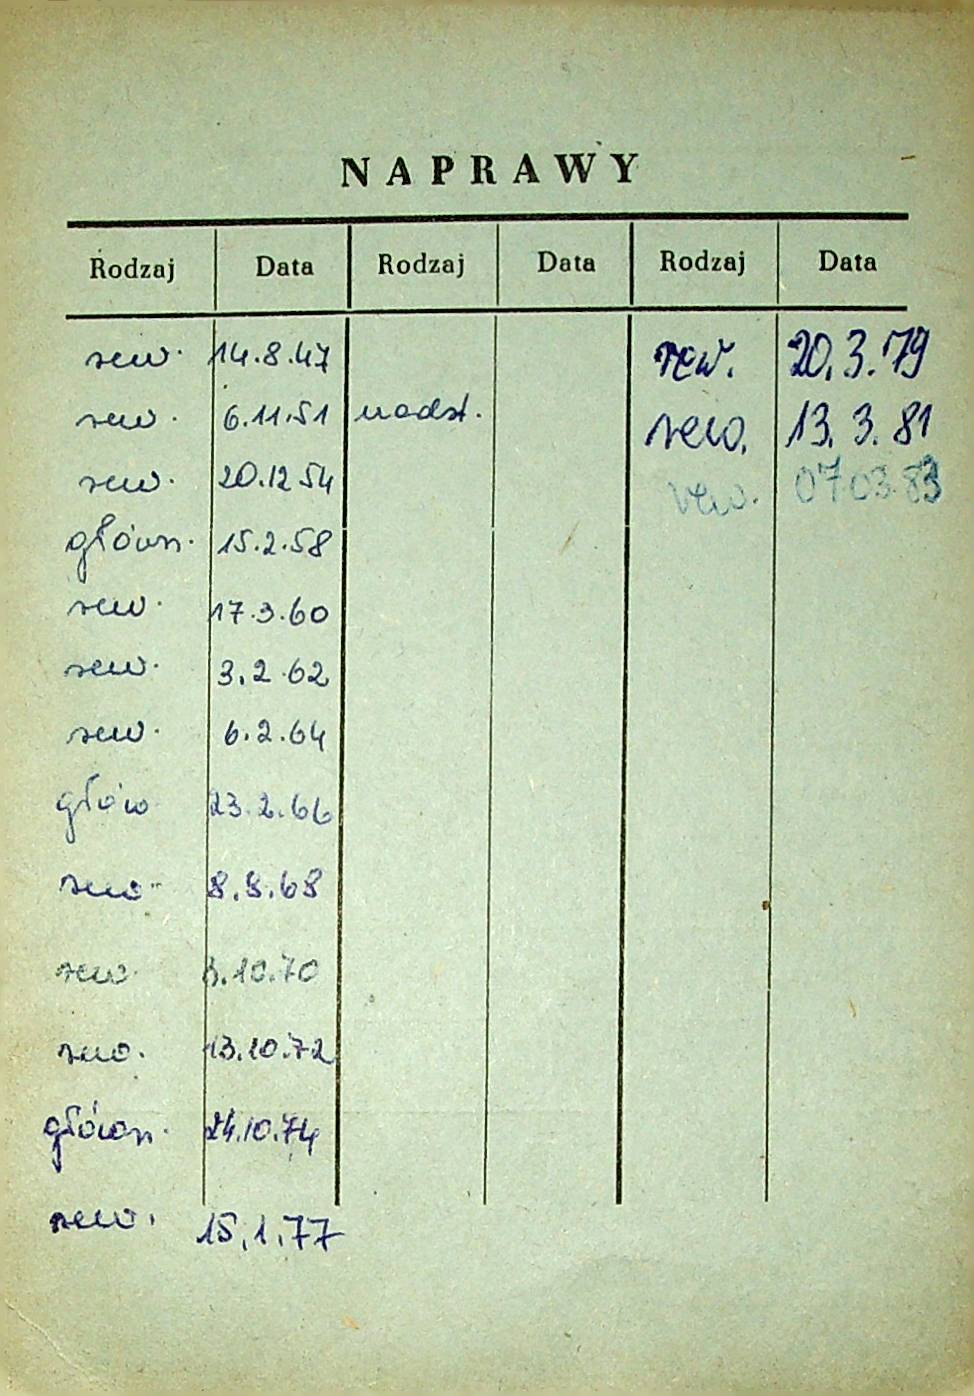 NAPRAWY
Rodzaj Data Rodzaj Data Rodzaj Data
rew. 14.8.47 rew. 20.3.79
rew. 6.11.51 nadst. rew. 13.3.81
rew. 20.12 54 rew. 07 03.83
główn. 15.2.58
rew. 17.3.60
rew. 3.2.62
rew. 6.2.64
głów 23.2.66
rew. 8.8.68
rew. 3.10.70
rew. 13.10.72
główn. 24.10.74
rew. 15.1.77